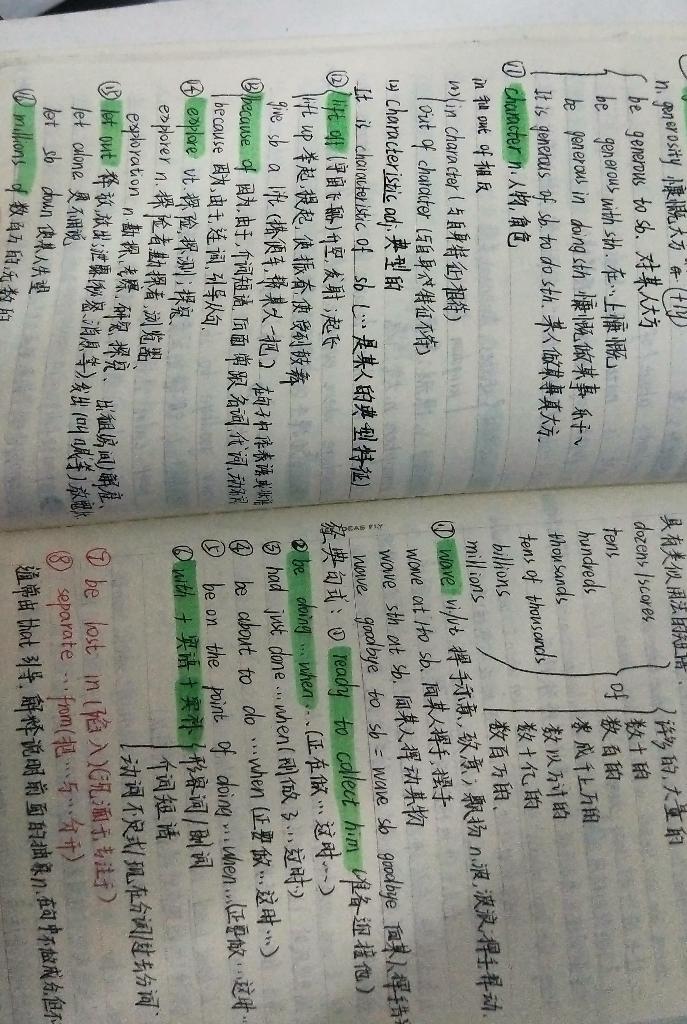 n. generosity 慷慨大方 (+ly)
be generous to sb. 对某人大方
be generous with sth. 在…上慷慨
be generous in doing sth 慷慨做某事 乐于
It is generous of sb. to do sth. 某人做某事真大方.
⑪ character n. 人物, 角色
in 和 out of 相反
in character (与自身特征相符)
out of character (与自身特征不符)
characteristic adj. 典型的
It is characteristic of sb (…是某人的典型特征)
⑫ lift off (宇宙飞船) 升空, 发射; 起飞
lift up 举起, 提起, 使振奋, 使受到鼓舞
give sb a lift (搭便车, 捎某人一程)
⑬ because of 因为, 由于, 介词短语, 后面常跟名词, 代词, 动名词
because 因为, 由于, 连词, 引导从句.
⑭ explore vt. 探险, 探测; 探究
explorer n. 探险者, 勘探者, 浏览器
exploration n. 勘探, 考察, 研究, 探究
⑮ let out 释放, 放出, 泄露(秘密, 消息等) 发出(叫喊等)
let alone 更不用说
let sb down 使某人失望
⑯ millions of 数百万的, 无数的
具有类似用法的短语:
dozens/scores
tens
hundreds
thousands
tens of thousands
billions
millions
of
许多的, 大量的
数十的
数百的
成千上万的
数以万计的
数十亿的
数百万的
⑰ wave vi/vt 挥手示意, 致意, 飘扬 n. 波, 波浪, 挥手, 挥动.
wave at/to sb. 向某人挥手, 摆手
wave sth at sb. 向某人挥动某物
wave goodbye to sb = wave sb goodbye 向某人挥手告
经典句式: ① ready to collect him (准备迎接他)
② be doing … when … (正在做…这时…)
③ had just done … when (刚做了…这时…)
④ be about to do … when (正要做…这时…)
⑤ be on the point of doing … when … (正要做…这时…
⑥ with + 宾语 + 宾补
形容词/副词
介词短语
动词不定式/现在分词/过去分词.
⑦ be lost in (陷入)(沉湎于, 专注于)
⑧ separate … from (把…与…分开)
通常由 that 引导, 解释说明前面的抽象n. 在句中不做成分, 但不